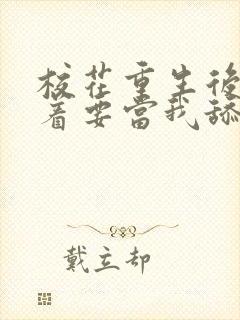 校花重生後
着要當我舔
戴立却